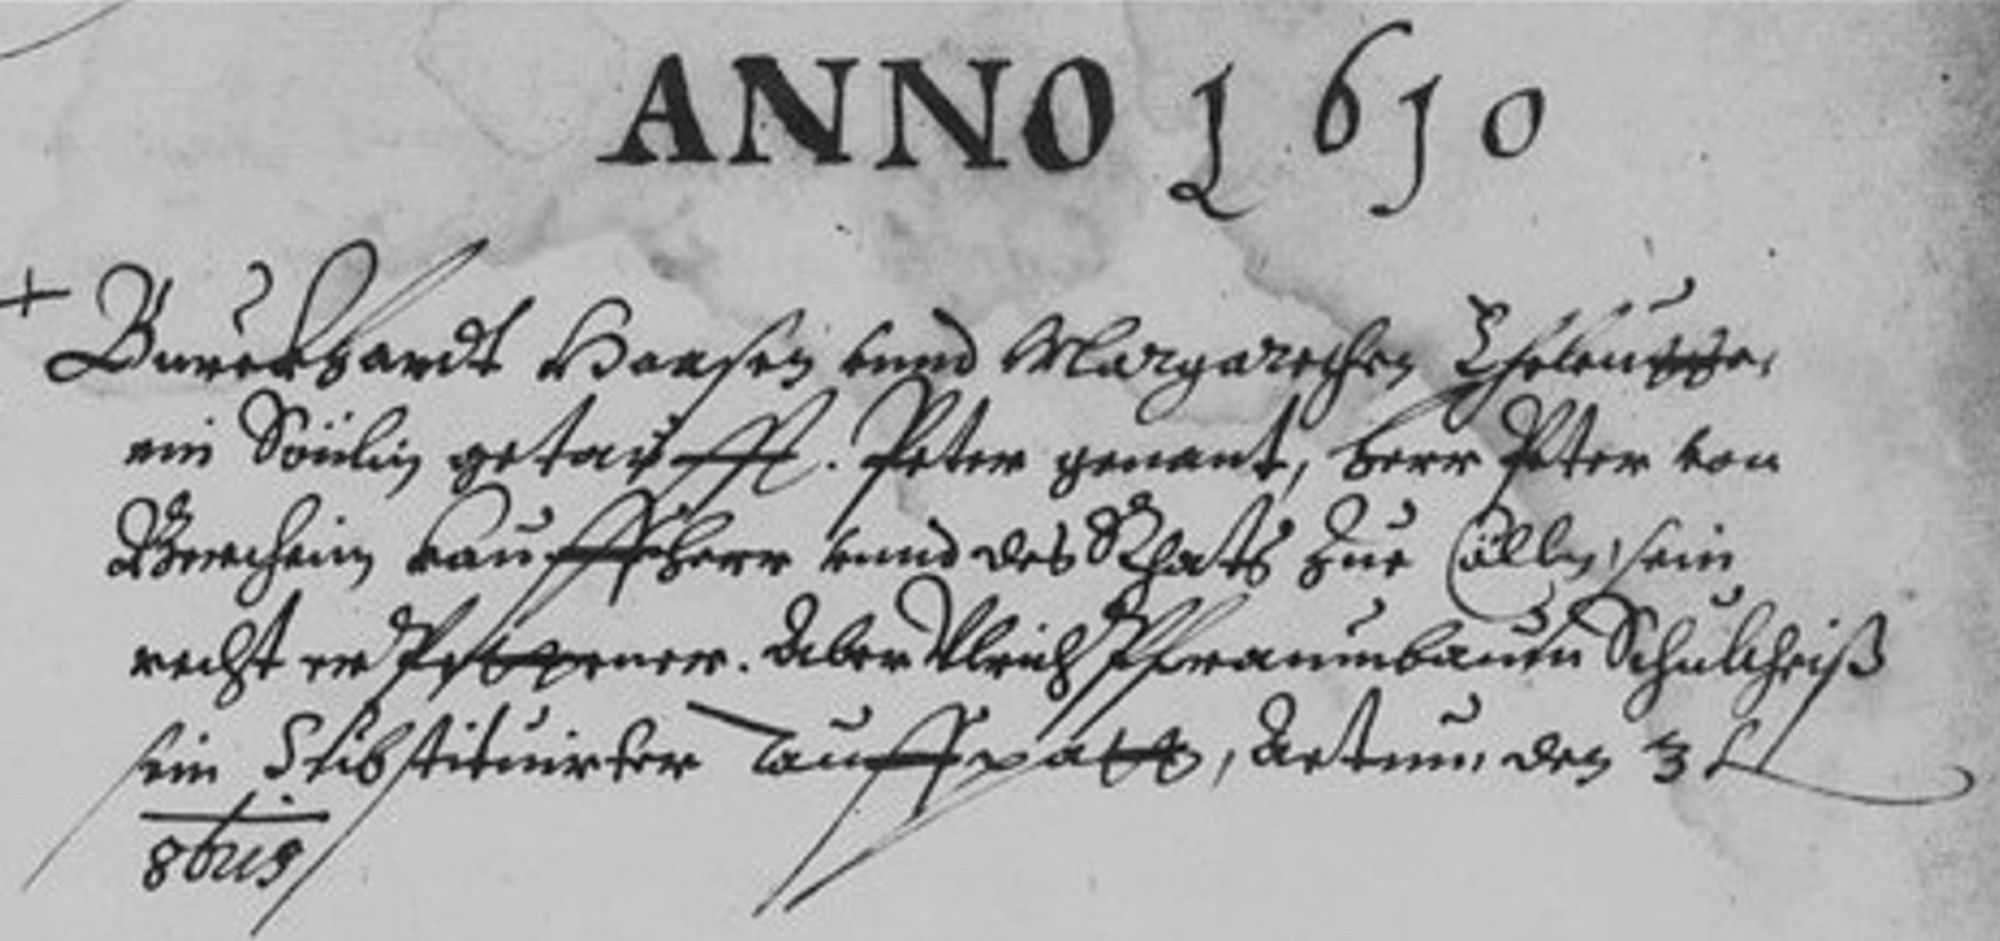 ANNO 1610
+ Burckhardt Haasen vnnd Margarethen Eheleutten
ein Sönlin getaufft. Peter genant, herr Peter von
Berchem kauffherr vnnd des Rhatts zue Cölln, sein
recht er Pettener. Aber Ulrich Pflaumbaum Schultheiß
sein Substituirter Tauffpatt, Actum, den 31
8bris